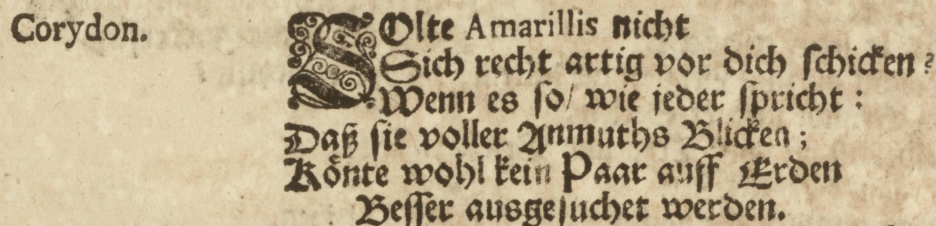 Corydon.
SOlte Amarillis nicht
Sich recht artig vor dich schicken?
Wenn es so/ wie jeder spricht:
Daß sie voller Anmuths Blicken;
Könte wohl kein Paar auff Erden
Besser ausgesuchet werden.